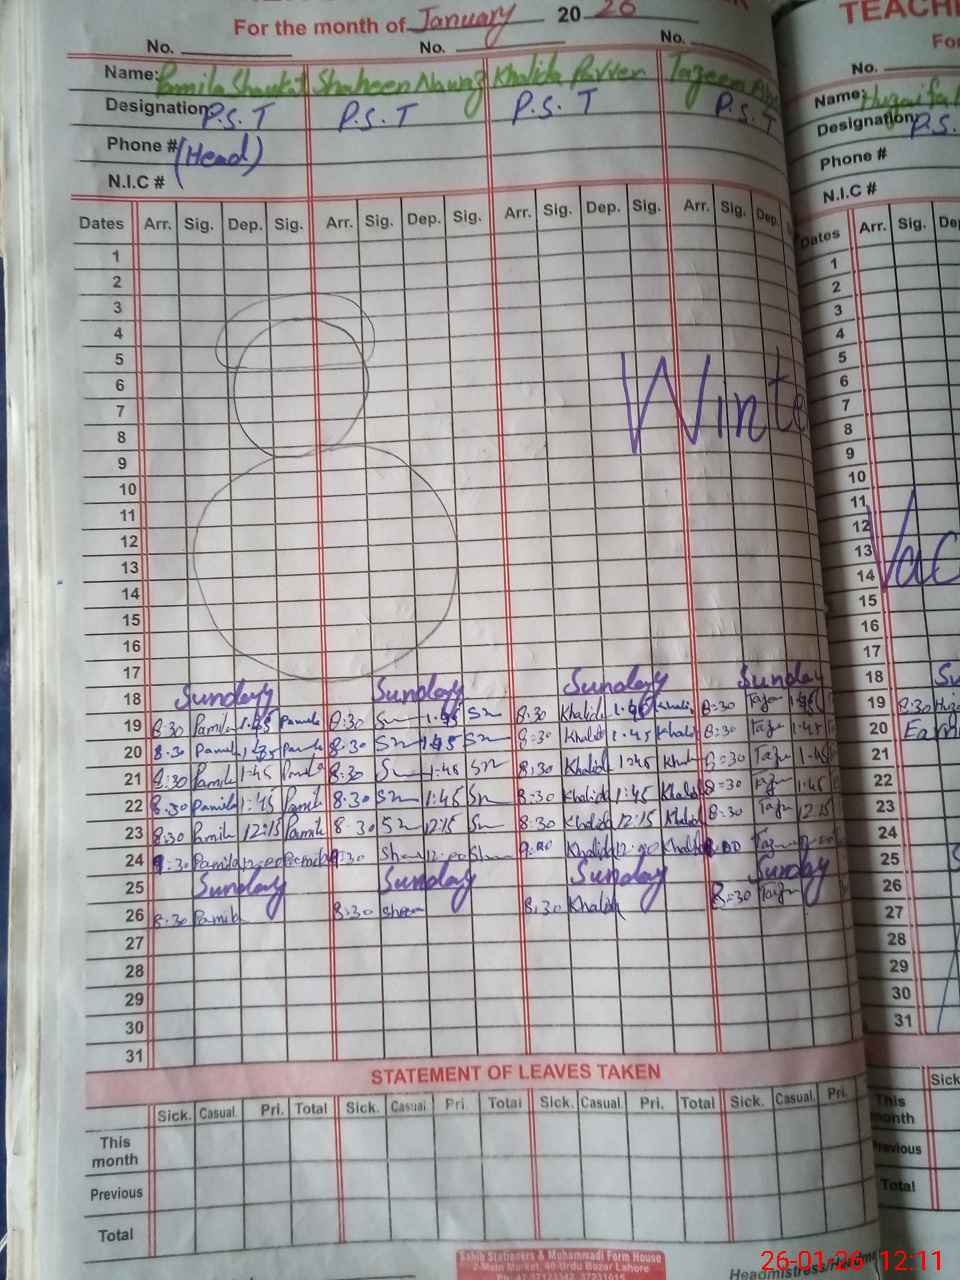 For the month of January 2026
No. No. No.
Name: Pamila Shaukat Shaheen Nawaz Khalida Parveen Tazeem
Designation P.S.T P.S.T P.S.T P.S.T
Phone # (Head)
N.I.C #
Dates Arr. Sig. Dep. Sig. Arr. Sig. Dep. Sig. Arr. Sig. Dep. Sig. Arr. Sig. Dep.
1
2
3
4
5
6
7
8
9
10
11
12
13
14
15
16
17
Winte
18 Sunday Sunday Sunday Sunday
19 8:30 Pamila 1.45 Pamila 8:30 Sn 1.45 Sn 8.30 Khalida 1.45 Khalid 8=30 1.45
20 8.30 Pamila 1.45 Pamila 8.30 Sn 1.45 Sn 8:30 Khalid 1.45 Khalid 8:30 1.45
21 8:30 Pamil 1.45 Pamila 8:30 Sn 1:45 Sn 8:30 Khalid 1.45 Khal 8=30 1.45
22 8.30 Pamila 1:45 Pamil 8.30 Sn 1:45 Sn 8:30 Khalid 1:45 Khalid 8=30 1:45
23 8:30 Pamil 12:15 Pamila 8.30 Sn 12:15 Sn 8:30 Khalid 12:15 Khalid 8:30 12:15
24 9:30 Pamila 12:00 Pamila 9:30 Shaheen 12:00 9:00 Khalid 12:00 Khalid
25 Sunday Sunday Sunday Sunday
26 8:30 Pamila 8:30 Shaheen 8:30 Khalida 8=30
27
28
29
30
31
STATEMENT OF LEAVES TAKEN
Sick. Casual. Pri. Total Sick. Casual. Pri. Total Sick. Casual. Pri. Total Sick. Casual. Pri.
This month
Previous
Total
Sahib Stationers & Muhammadi Form House
2-Main Market, 40-Urdu Bazar Lahore
TEACH
For
No.
Name:
Designation: P.S.
Phone #
N.I.C #
Dates Arr. Sig. De
1
2
3
4
5
6
7
8
9
10
11
12
13
14
Vac
15
16
17
18 Su
19 8:30
20
21
22
23
24
25
26
27
28
29
30
31
Sick
This month
Previous
Total
26-01-26 12:11